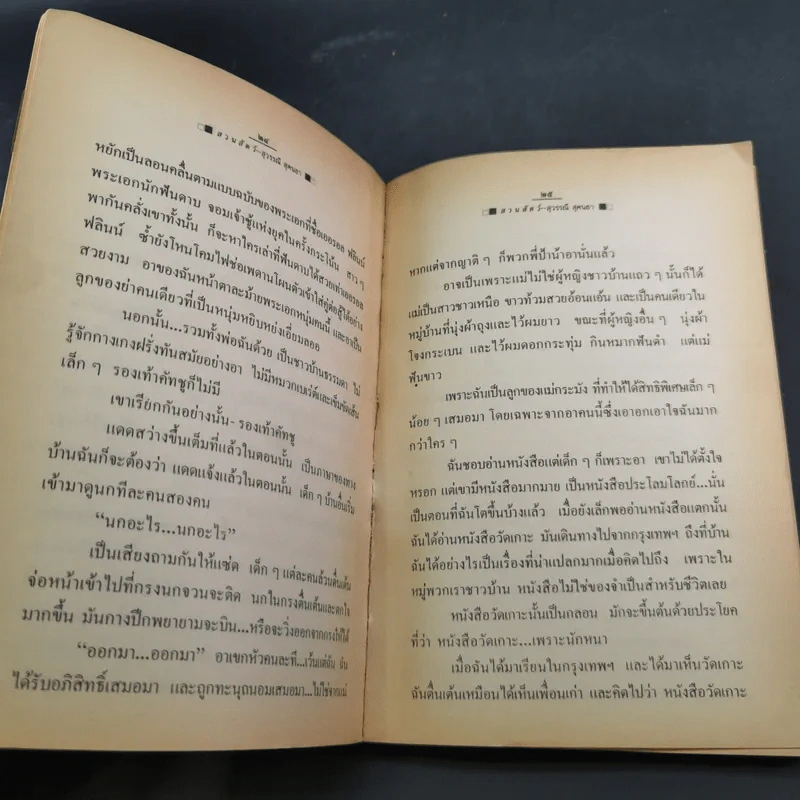 ๒๔
สวนสัตว์-สุวรรณี สุคนธา
หยักเป็นลอนคลื่นตามแบบฉบับของพระเอกที่ชื่อเออรอล ฟลินน์
พระเอกนักฟันดาบ จอมเจ้าชู้แห่งยุคในครั้งกระโน้น สาว ๆ
พากันคลั่งเขาทั้งนั้น ก็จะหาใครเล่าที่ฟันดาบได้สวยเท่าเออรอล
ฟลินน์ ซ้ำยังโหนโคมไฟช่อเพดานโผนตัวเข้าใส่คู่ต่อสู้ได้อย่าง
สวยงาม อาของฉันหน้าตาละม้ายพระเอกหนุ่มคนนี้ และอาเป็น
ลูกของย่าคนเดียวที่เป็นหนุ่มหยิบหย่งเอี่ยมลออ
นอกนั้น...รวมทั้งพ่อฉันด้วย เป็นชาวบ้านธรรมดา ไม่
รู้จักกางเกงฝรั่งทันสมัยอย่างอา ไม่มีหมวกเบเร่ต์และเข็มขัดเส้น
เล็ก ๆ รองเท้าคัทชูก็ไม่มี
เขาเรียกกันอย่างนั้น- รองเท้าคัทชู
แดดสว่างขึ้นเต็มที่แล้วในตอนนั้น เป็นภาษาของทาง
บ้านฉันก็จะต้องว่า แดดแจ้งแล้วในตอนนั้น เด็ก ๆ บ้านอื่นเริ่ม
เข้ามาดูนกทีละคนสองคน
“นกอะไร...นกอะไร”
เป็นเสียงถามกันให้แซ่ด เด็ก ๆ แต่ละคนล้วนตื่นเต้น
จ่อหน้าเข้าไปที่กรงนกจวนจะติด นกในกรงตื่นเต้นและตกใจ
มากขึ้น มันกางปีกพยายามจะบิน...หรือจะวิ่งออกจากกรงให้ได้
“ออกมา...ออกมา” อาเขกหัวคนละที...เว้นแต่ฉัน ฉัน
ได้รับอภิสิทธิ์เสมอมา และถูกทะนุถนอมเสมอมา...ไม่ใช่จากแม่
๒๕
สวนสัตว์-สุวรรณี สุคนธา
หากแต่จากญาติ ๆ ก็พวกพี่ป้าน้าอานั่นแล้ว
อาจเป็นเพราะแม่ไม่ใช่ผู้หญิงชาวบ้านแถว ๆ นั้นก็ได้
แม่เป็นสาวชาวเหนือ ขาวท้วมสวยอ้อนแอ้น และเป็นคนเดียวใน
หมู่บ้านที่นุ่งผ้าถุงและไว้ผมยาว ขณะที่ผู้หญิงอื่น ๆ นุ่งผ้า
โจงกระเบน และไว้ผมดอกกระทุ่ม กินหมากฟันดำ แต่แม่
ฟันขาว
เพราะฉันเป็นลูกของแม่กระมัง ที่ทำให้ได้สิทธิพิเศษเล็ก ๆ
น้อย ๆ เสมอมา โดยเฉพาะจากอาคนนี้ซึ่งเอาอกเอาใจฉันมาก
กว่าใคร ๆ
ฉันชอบอ่านหนังสือแต่เด็ก ๆ ก็เพราะอา เขาไม่ได้ตั้งใจ
หรอก แต่เขามีหนังสือมากมาย เป็นหนังสือประโลมโลกย์...นั่น
เป็นตอนที่ฉันโตขึ้นบ้างแล้ว เมื่อยังเล็กพออ่านหนังสือแตกนั้น
ฉันได้อ่านหนังสือวัดเกาะ มันเดินทางไปจากกรุงเทพฯ ถึงที่บ้าน
ฉันได้อย่างไรเป็นเรื่องที่น่าแปลกมากเมื่อคิดไปถึง เพราะใน
หมู่พวกเราชาวบ้าน หนังสือไม่ใช่ของจำเป็นสำหรับชีวิตเลย
หนังสือวัดเกาะนั้นเป็นกลอน มักจะขึ้นต้นด้วยประโยค
ที่ว่า หนังสือวัดเกาะ...เพราะนักหนา
เมื่อฉันได้มาเรียนในกรุงเทพฯ และได้มาเห็นวัดเกาะ
ฉันตื่นเต้นเหมือนได้เห็นเพื่อนเก่า และคิดไปว่า หนังสือวัดเกาะ